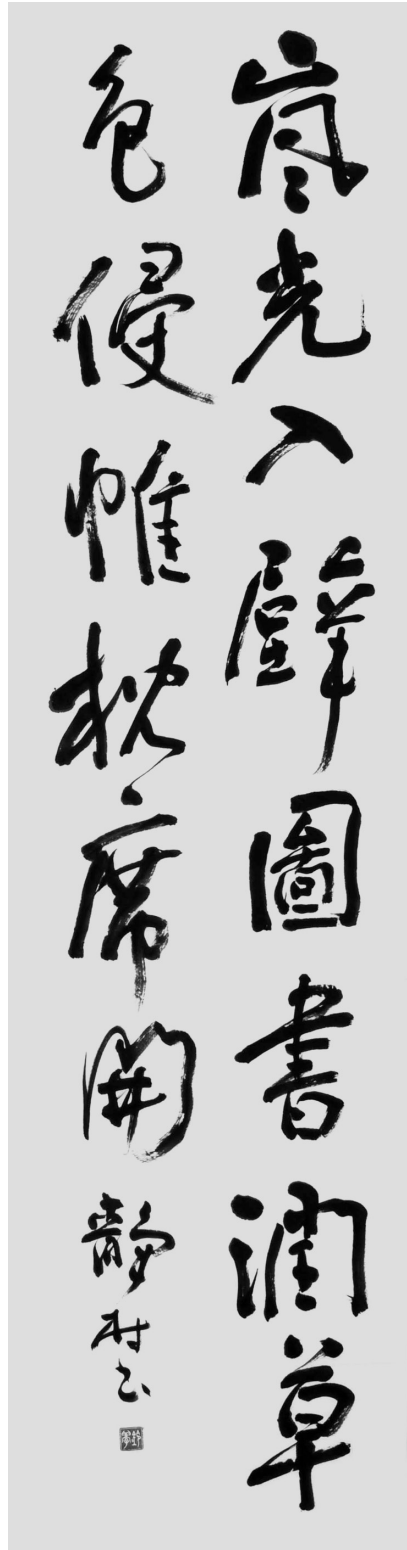 嵐光入壁圖書潤草
色侵帷枕席開
靜村书